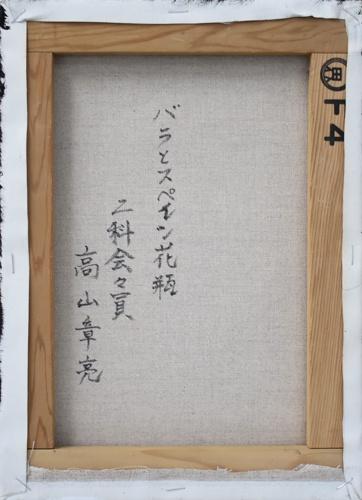 バラとスペイン花瓶
二科会々員
高山章亮
F4